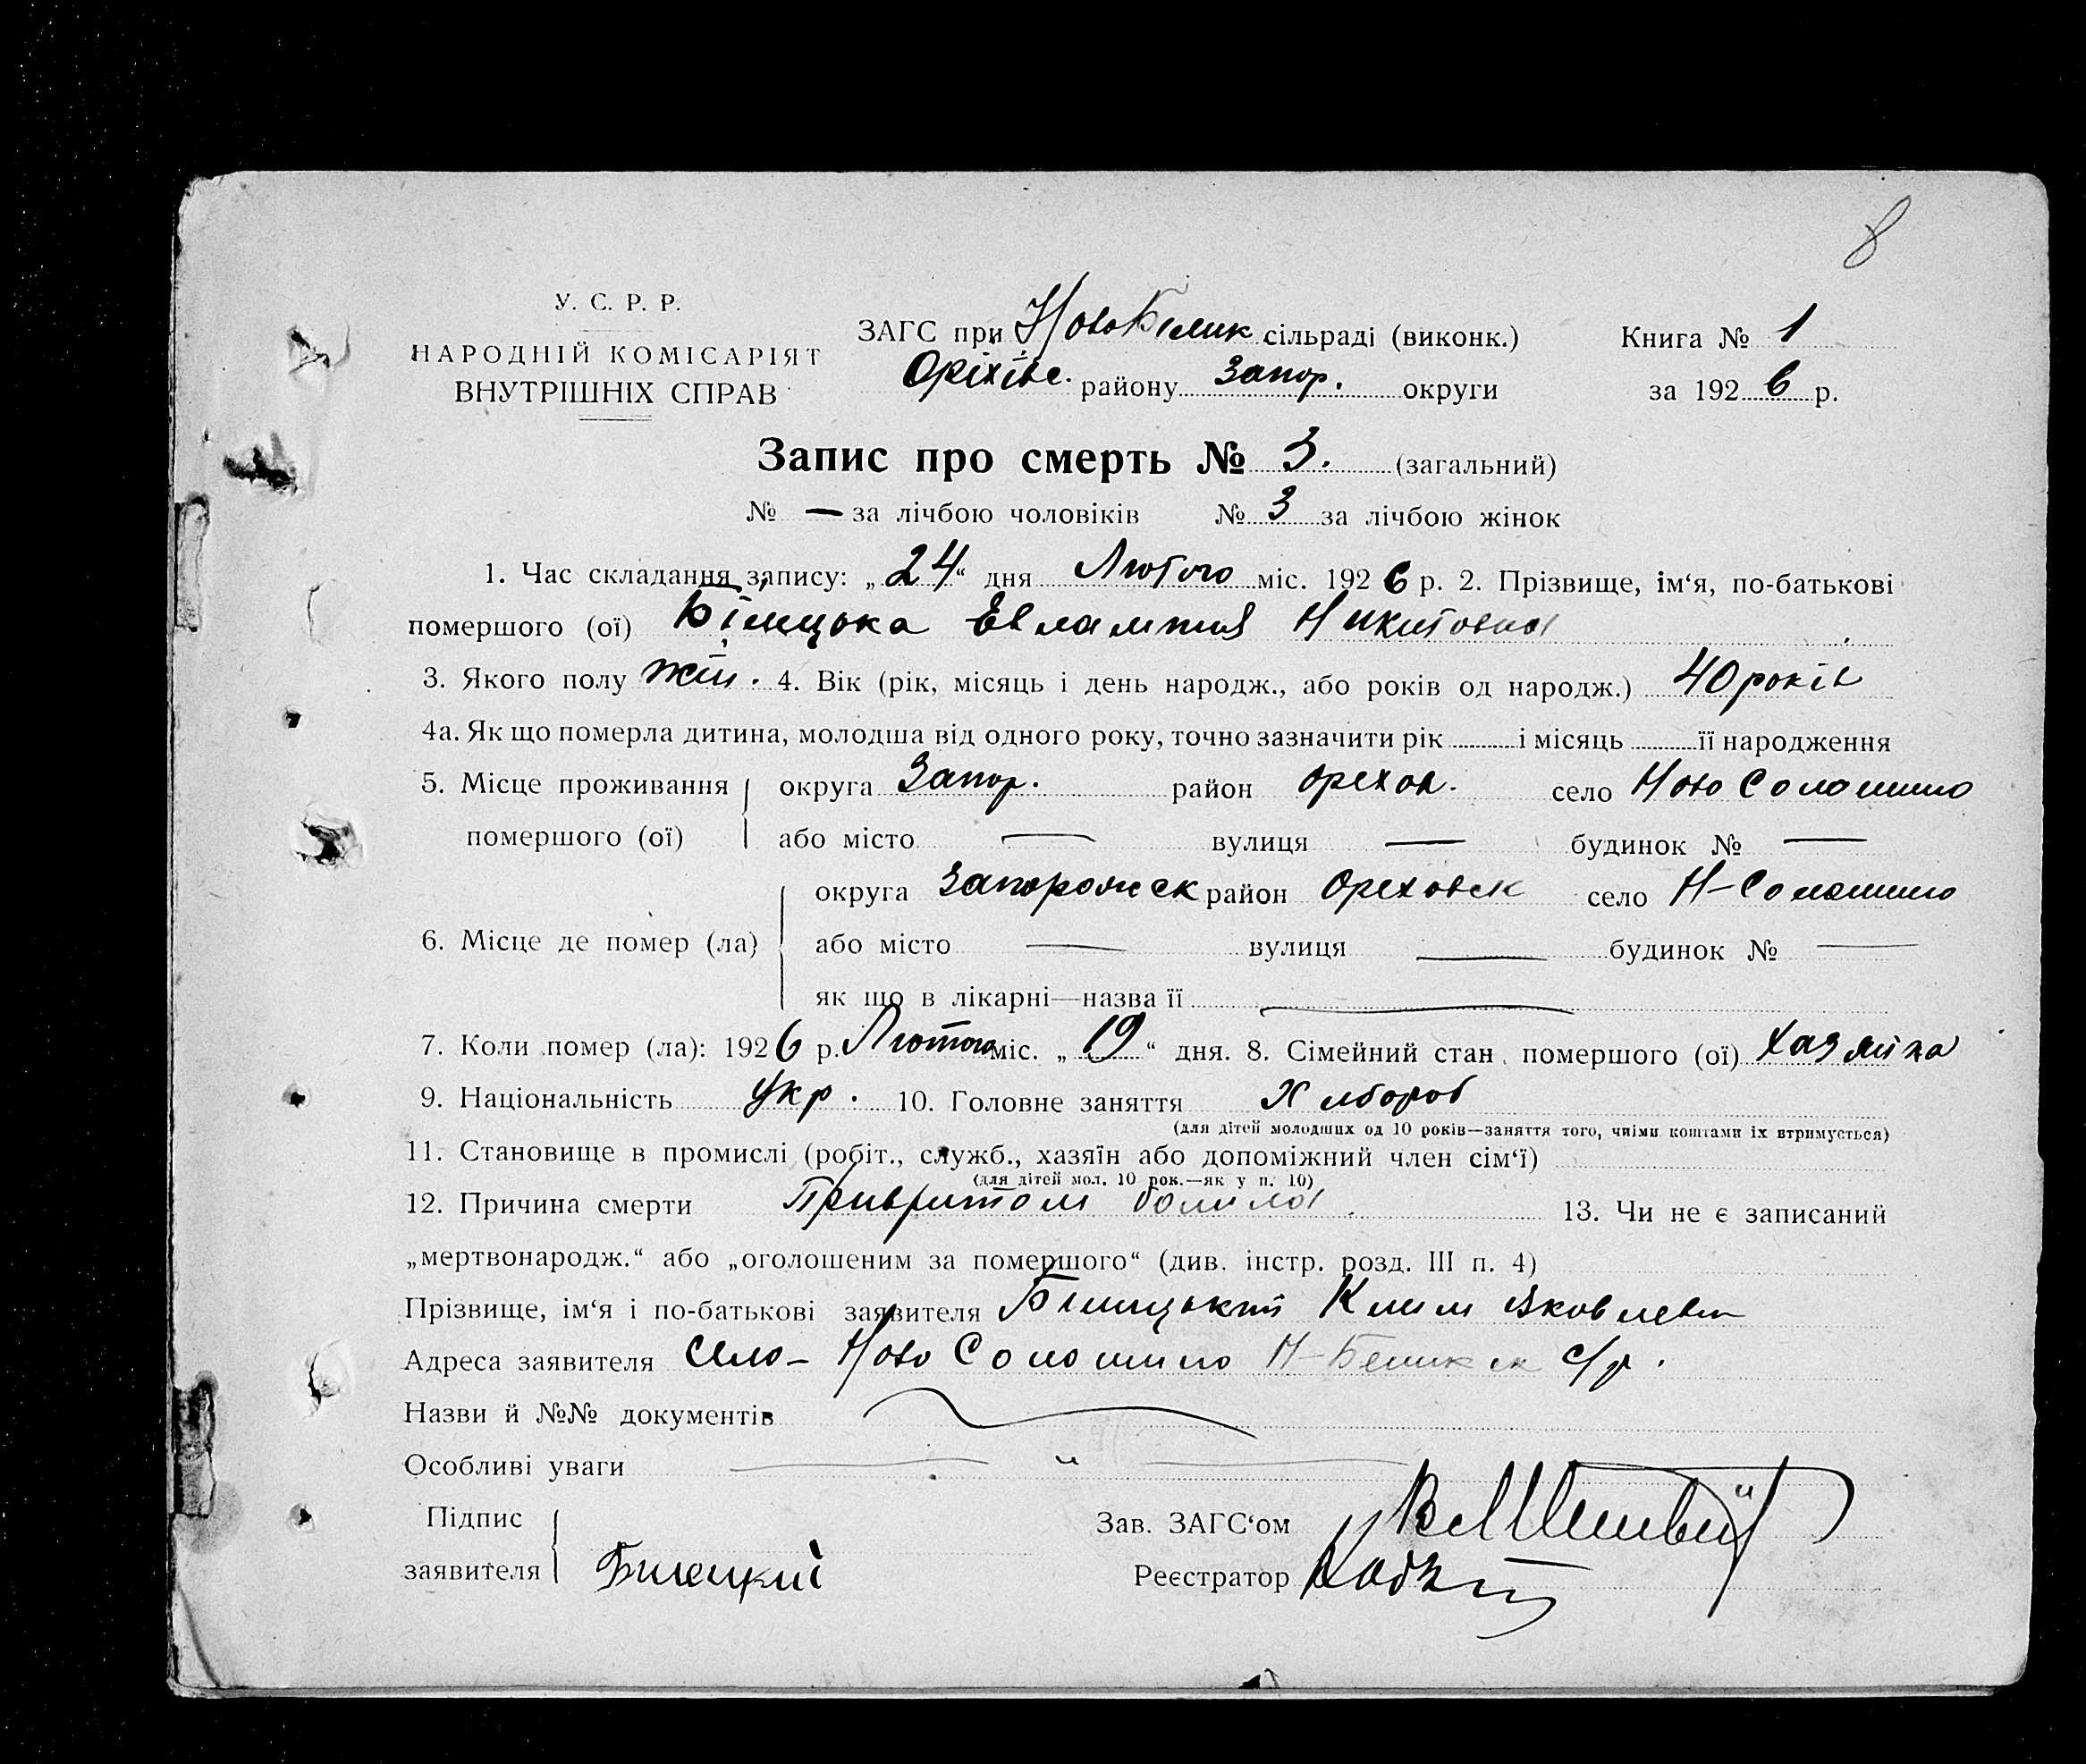 8
У. С. Р. Р.
НАРОДНІЙ КОМІСАРІЯТ
ВНУТРІШНІХ СПРАВ
ЗАГС при НовоБілик сільраді (виконк.)
Оріхівс. району Запор. округи
Книга № 1
за 1926 р.
Запис про смерть № 3. (загальний)
№ — за лічбою чоловіків № 3 за лічбою жінок
1. Час складання запису: „24“ дня Лютого міс. 1926 р. 2. Прізвище, ім‘я, по-батькові
помершого (ої) Білицька Евлампия Никитовна
3. Якого полу жін. 4. Вік (рік, місяць і день народж., або років од народж.) 40 років
4а. Як що померла дитина, молодша від одного року, точно зазначити рік і місяць її народження
5. Місце проживання помершого (ої) округа Запор. район Орехов. село Ново Солошино
або місто — вулиця — будинок № —
6. Місце де помер (ла) округа Запорожск район Ореховск село Н-Солошино
або місто — вулиця — будинок № —
як що в лікарні—назва її —
7. Коли помер (ла): 1926 р. Лютого міс. „19“ дня. 8. Сімейний стан помершого (ої) Хазяйка
9. Національність Укр. 10. Головне заняття Хлібороб
(для дітей молодших од 10 років—заняття того, чиїми коштами їх втримується)
11. Становище в промислі (робіт., служб., хазяїн або допоміжний член сім‘ї)
(для дітей мол. 10 рок.—як у п. 10)
12. Причина смерти болила 13. Чи не є записаний
„мертвонародж.“ або „оголошеним за помершого“ (див. інстр. розд. III п. 4)
Прізвище, ім‘я і по-батькові заявителя Білицький Клим Яковлев
Адреса заявителя село - Ново Солошино Н-Белик с/р.
Назви й №№ документів
Особливі уваги — " —
Підпис заявителя Билецкий
Зав. ЗАГС‘ом
Реєстратор